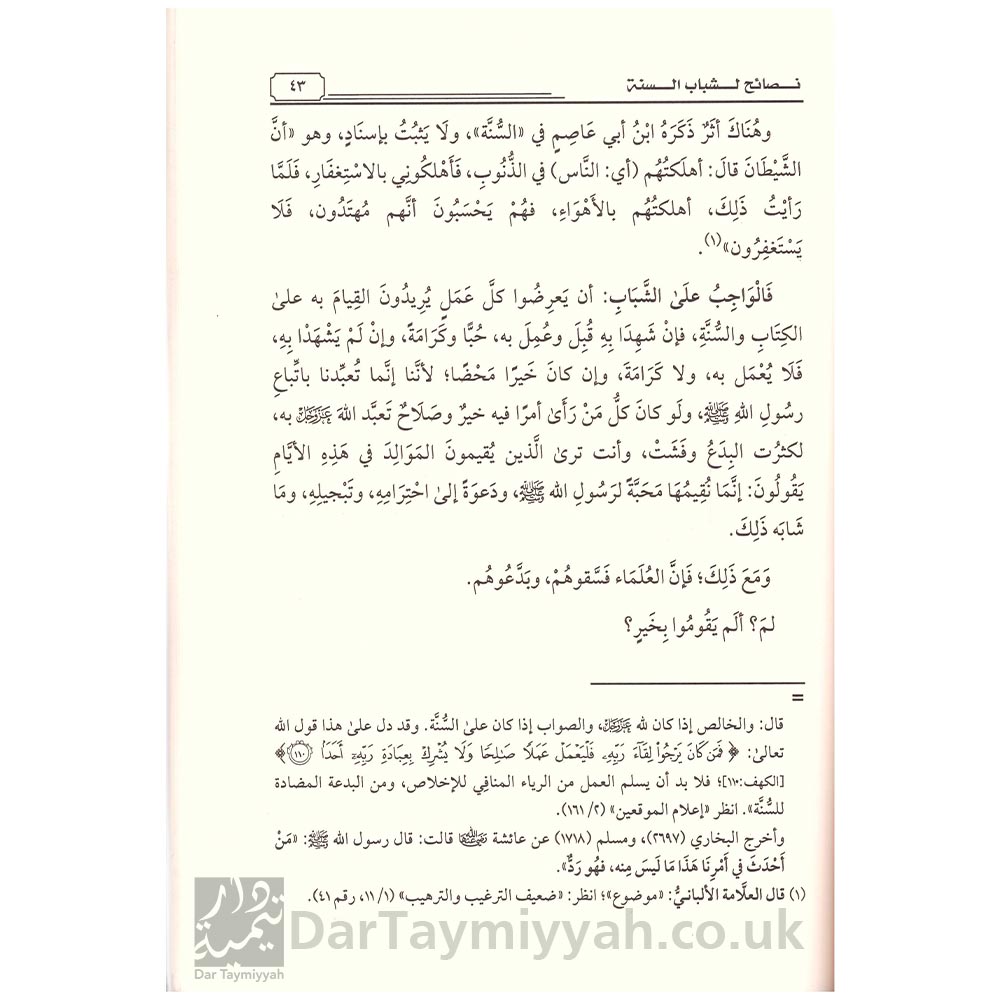 نـصائح لـشباب الـسنة
٤٣
وهُنَاكَ أثَرٌ ذَكَرَهُ ابْنُ أبي عَاصِمٍ في «السُّنَّة»، ولَا يَثبُتُ بإسنَادٍ، وهو «أنَّ
الشَّيْطَانَ قالَ: أهلَكتُهُم (أي: النَّاس) في الذُّنُوبِ، فَأَهْلكُونِي بالاسْتِغفَارِ، فَلَمَّا
رَأيْتُ ذَلِكَ، أهلكتُهُم بالأَهْوَاءِ، فهُمْ يَحْسَبُونَ أنَّهم مُهتَدُون، فَلَا
يَسْتَغفِرُون»(١).
فَالْوَاجِبُ علَىٰ الشَّبَابِ: أن يَعرِضُوا كلَّ عَمَلٍ يُرِيدُونَ القِيامَ به علىٰ
الكِتَابِ والسُّنَّةِ، فإنْ شَهِدَا بِهِ قُبِلَ وعُمِلَ به، حُبًّا وكَرَامَةً، وإنْ لَمْ يَشْهَدْا بِهِ،
فَلَا يُعْمَل به، ولا كَرَامَةَ، وإن كانَ خَيرًا مَحْضًا؛ لأنَّنا إنَّما تُعبِّدنا باتِّباعِ
رسُولِ اللهِ ﷺ، ولَو كانَ كلُّ مَنْ رَأَىٰ أمرًا فيه خيرٌ وصَلَاحٌ تَعبَّد اللهَ عَزَّوَجَلَّ به،
لكثرُت البِدَعُ وفَشَتْ، وأنت ترىٰ الَّذين يُقيمونَ المَوَالِدَ في هَذِهِ الأيَّامِ
يَقُولُونَ: إنَّمَا نُقِيمُهَا مَحَبَّةً لرَسُولِ الله ﷺ، ودَعوَةً إلىٰ احْتِرَامِهِ، وتَبْجيلِهِ، ومَا
شَابَه ذَلِكَ.
وَمَعَ ذَلِكَ؛ فَإنَّ العُلَمَاء فَسَّقوهُمْ، وبَدَّعُوهُم.
لمَ؟ ألَم يَقُومُوا بِخَيرٍ؟
=
قال: والخالص إذا كان لله عَزَّوَجَلَّ، والصواب إذا كان علىٰ السُّنَّة. وقد دل علىٰ هذا قول الله
تعالىٰ: ﴿فَمَن كَانَ يَرْجُوا۟ لِقَآءَ رَبِّهِۦ فَلْيَعْمَلْ عَمَلًا صَـٰلِحًا وَلَا يُشْرِكْ بِعِبَادَةِ رَبِّهِۦٓ أَحَدًۢا ﴿١١٠﴾﴾
[الكهف:١١٠]؛ فلا بد أن يسلم العمل من الرياء المنافي للإخلاص، ومن البدعة المضادة
للسُّنَّة». انظر «إعلام الموقعين» (٢/ ١٦١).
وأخرج البخاري (٢٦٩٧)، ومسلم (١٧١٨) عن عائشة رَضِيَ اللهُ عَنْهَا قالت: قال رسول الله ﷺ: «مَنْ
أَحْدَثَ في أَمْرِنَا هَذَا مَا لَيسَ مِنه، فَهُو رَدٌّ».
(١) قال العلَّامة الألبانيُّ: «موضوع»؛ انظر: «ضعيف الترغيب والترهيب» (١/ ١١، رقم ٤١).
دار تيمية
Dar Taymiyyah
DarTaymiyyah.co.uk